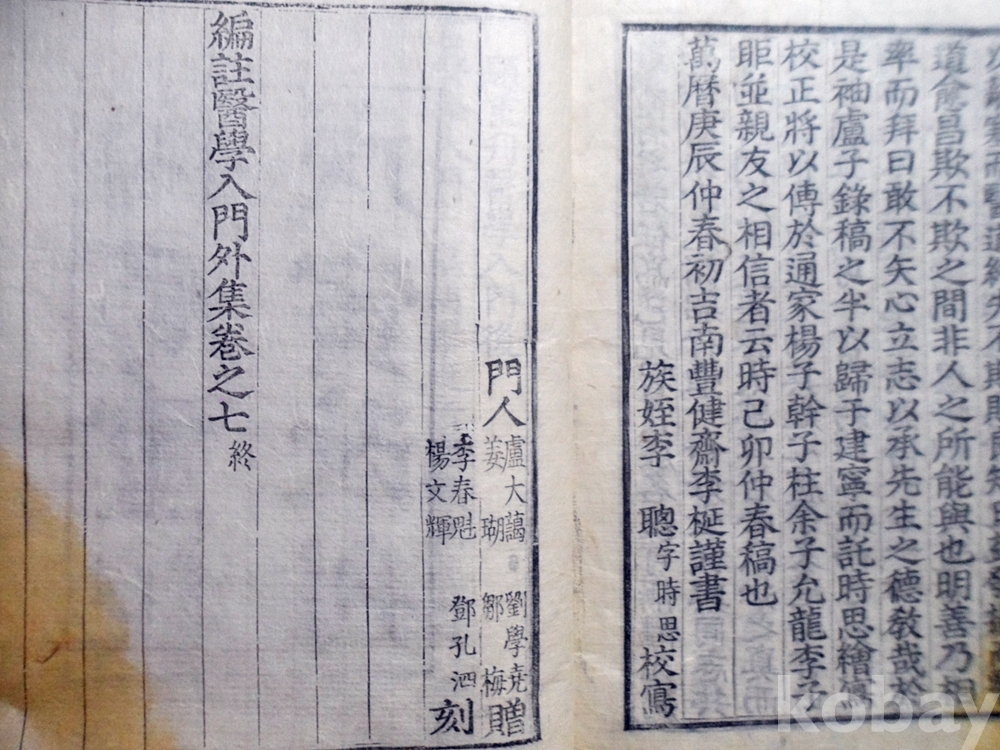 道愈昌欺不欺之間非人之所能與也明善乃相
率而拜曰敢不矢心立志以承先生之德教哉於
是袖盧子錄稿之半以歸子建寧而託時思繪寫
校正將以傳於通家楊子幹子柱余子允龍李子
眀並親友之相信者云時己卯仲春稿也
萬曆庚辰仲春初吉南豐健齋李梴謹書
族姪李聰字時思校寫
門人
盧大藹 劉學堯
姜瑚 鄒梅 贈
李春魁 鄧孔泗
楊文輝 刻
編註醫學入門外集卷之七 終
kobay